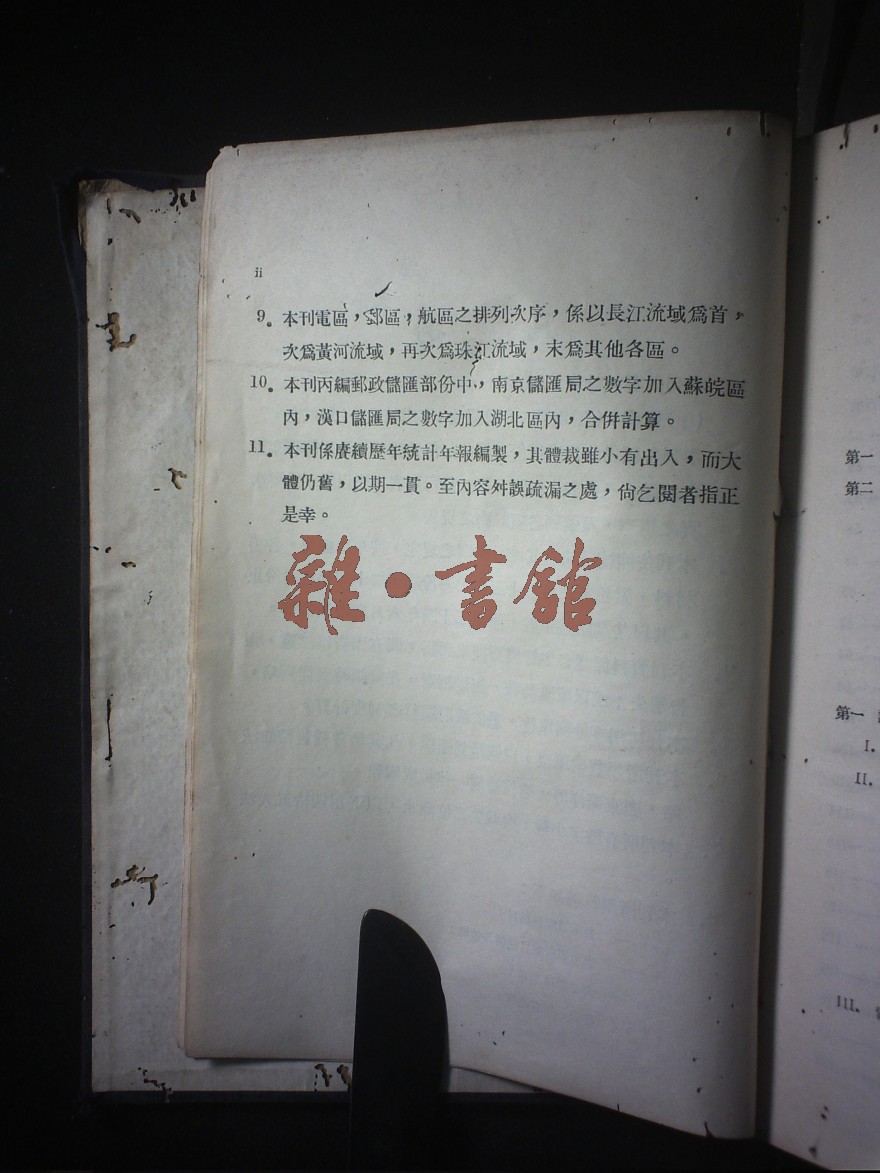 ii
9. 本刊電區，郵區，航區之排列次序，係以長江流域爲首，
次爲黃河流域，再次爲珠江流域，末爲其他各區。
10. 本刊丙編郵政儲匯部份中，南京儲匯局之數字加入蘇皖區
內，漢口儲匯局之數字加入湖北區內，合併計算。
11. 本刊係賡續歷年統計年報編製，其體裁雖小有出入，而大
體仍舊，以期一貫。至內容舛誤疏漏之處，尙乞閱者指正
是幸。
雜•書館
第一
第二
第一
I.
II.
III.